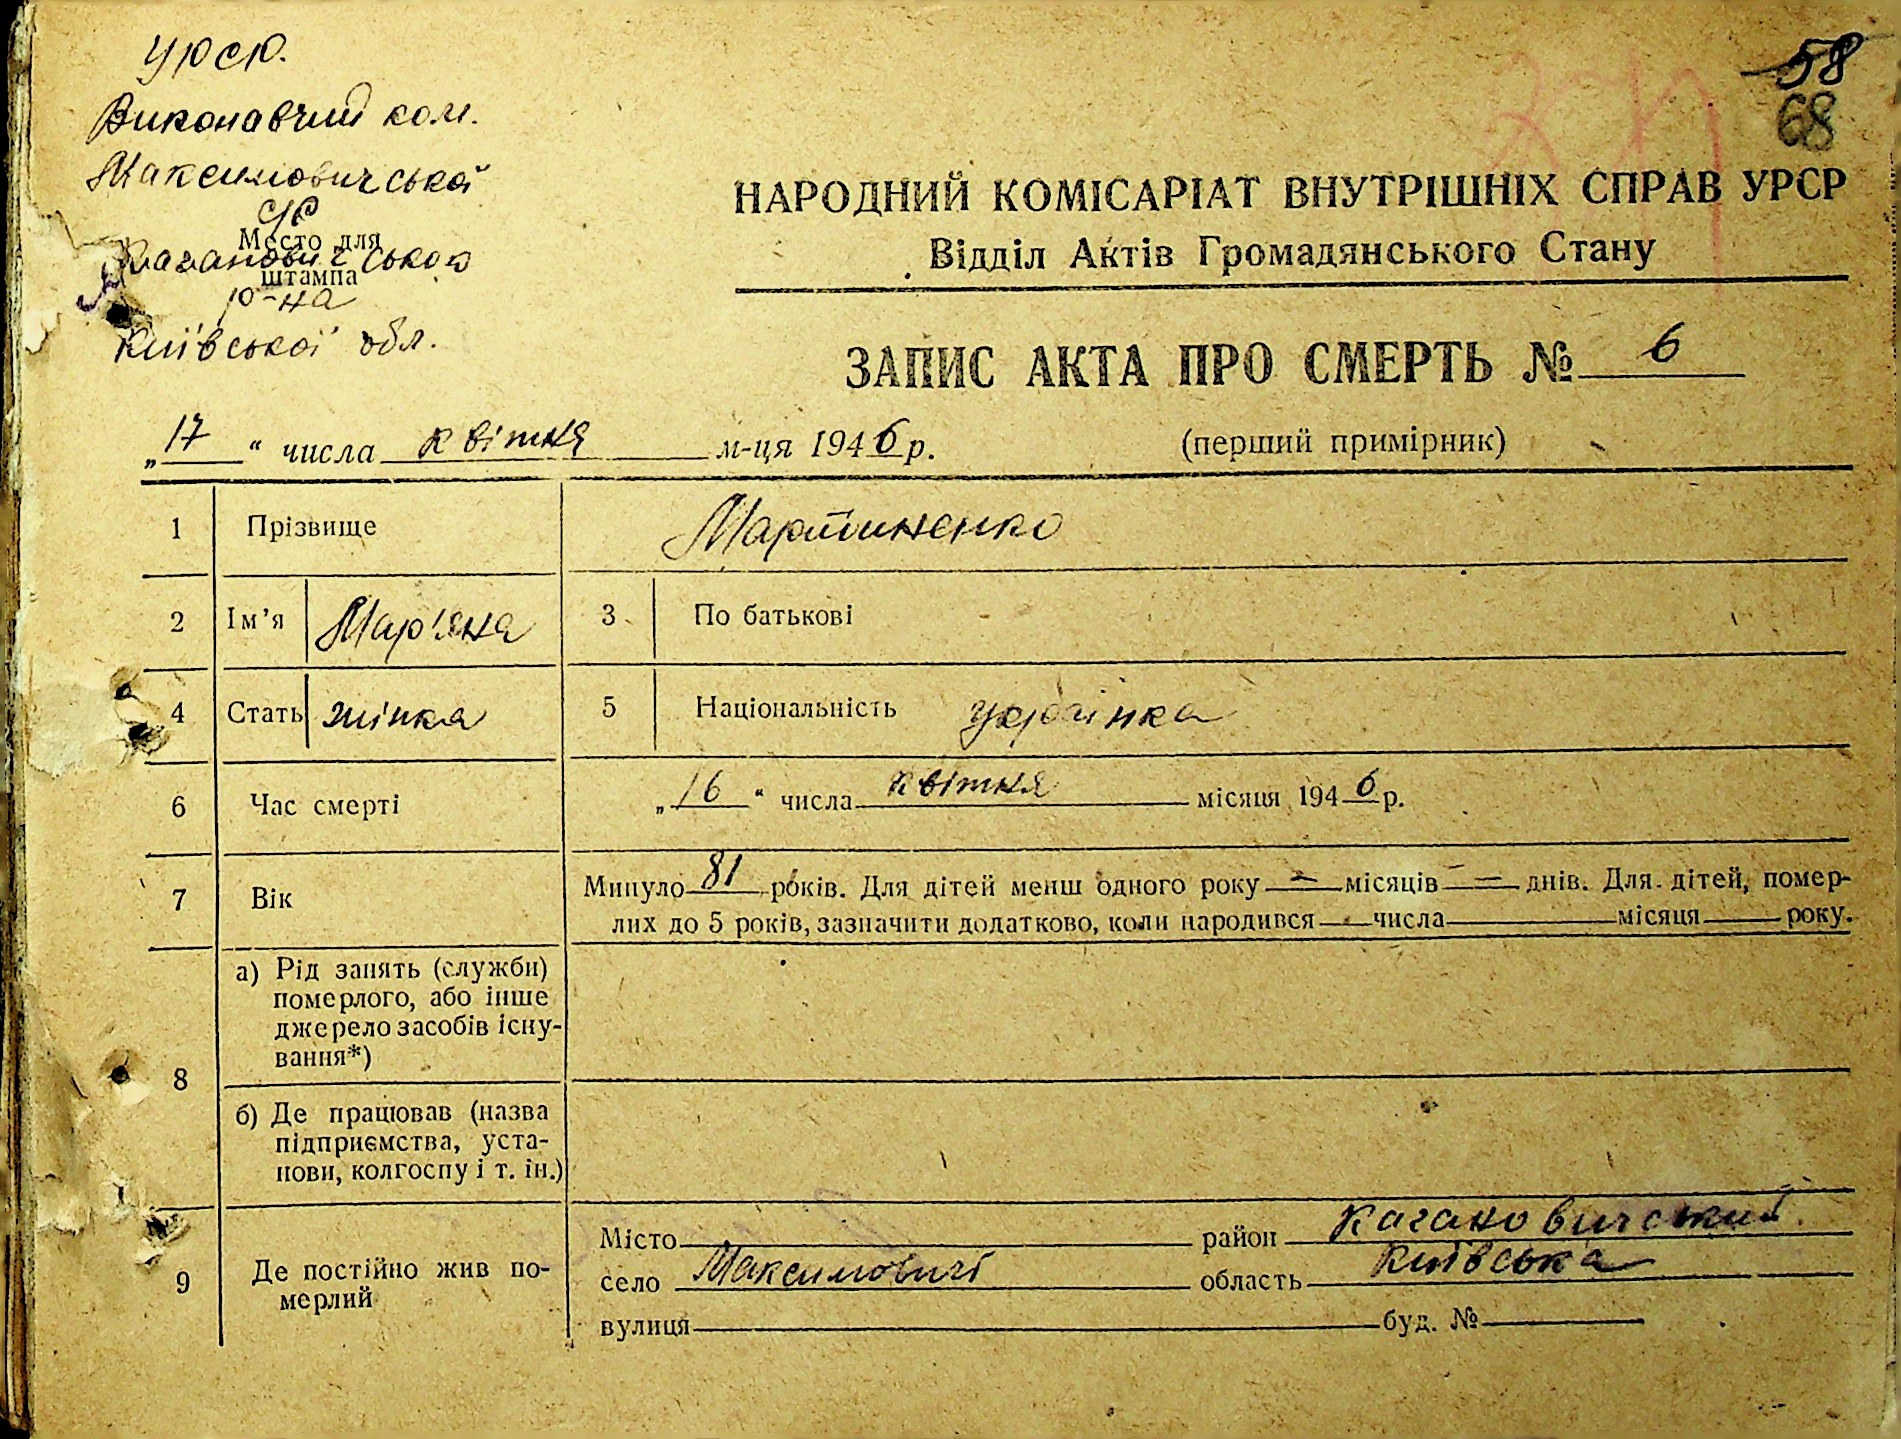 УРСР.
Виконавчий ком.
Максимовичської
с/р
Место для
Кагановичського
штампа
р-на
Київської обл.
58
68
НАРОДНИЙ КОМІСАРІАТ ВНУТРІШНІХ СПРАВ УРСР
Відділ Актів Громадянського Стану
ЗАПИС АКТА ПРО СМЕРТЬ № 6
„17“ числа квітня м-ця 1946 р.
(перший примірник)
1 Прізвище Мартиненко
2 Ім’я Мар'яна 3 По батькові
4 Стать жінка 5 Національність українка
6 Час смерті „16“ числа квітня місяця 1946 р.
7 Вік Минуло 81 років. Для дітей менш одного року — місяців — днів. Для дітей, помер-
лих до 5 років, зазначити додатково, коли народився числа місяця року.
8 а) Рід занять (служби)
померлого, або інше
джерело засобів існу-
вання*)
б) Де працював (назва
підприємства, уста-
нови, колгоспу і т. ін.)
9 Де постійно жив по-
мерлий
Місто район Кагановичський
село Максимовичі область Київська
вулиця буд. №